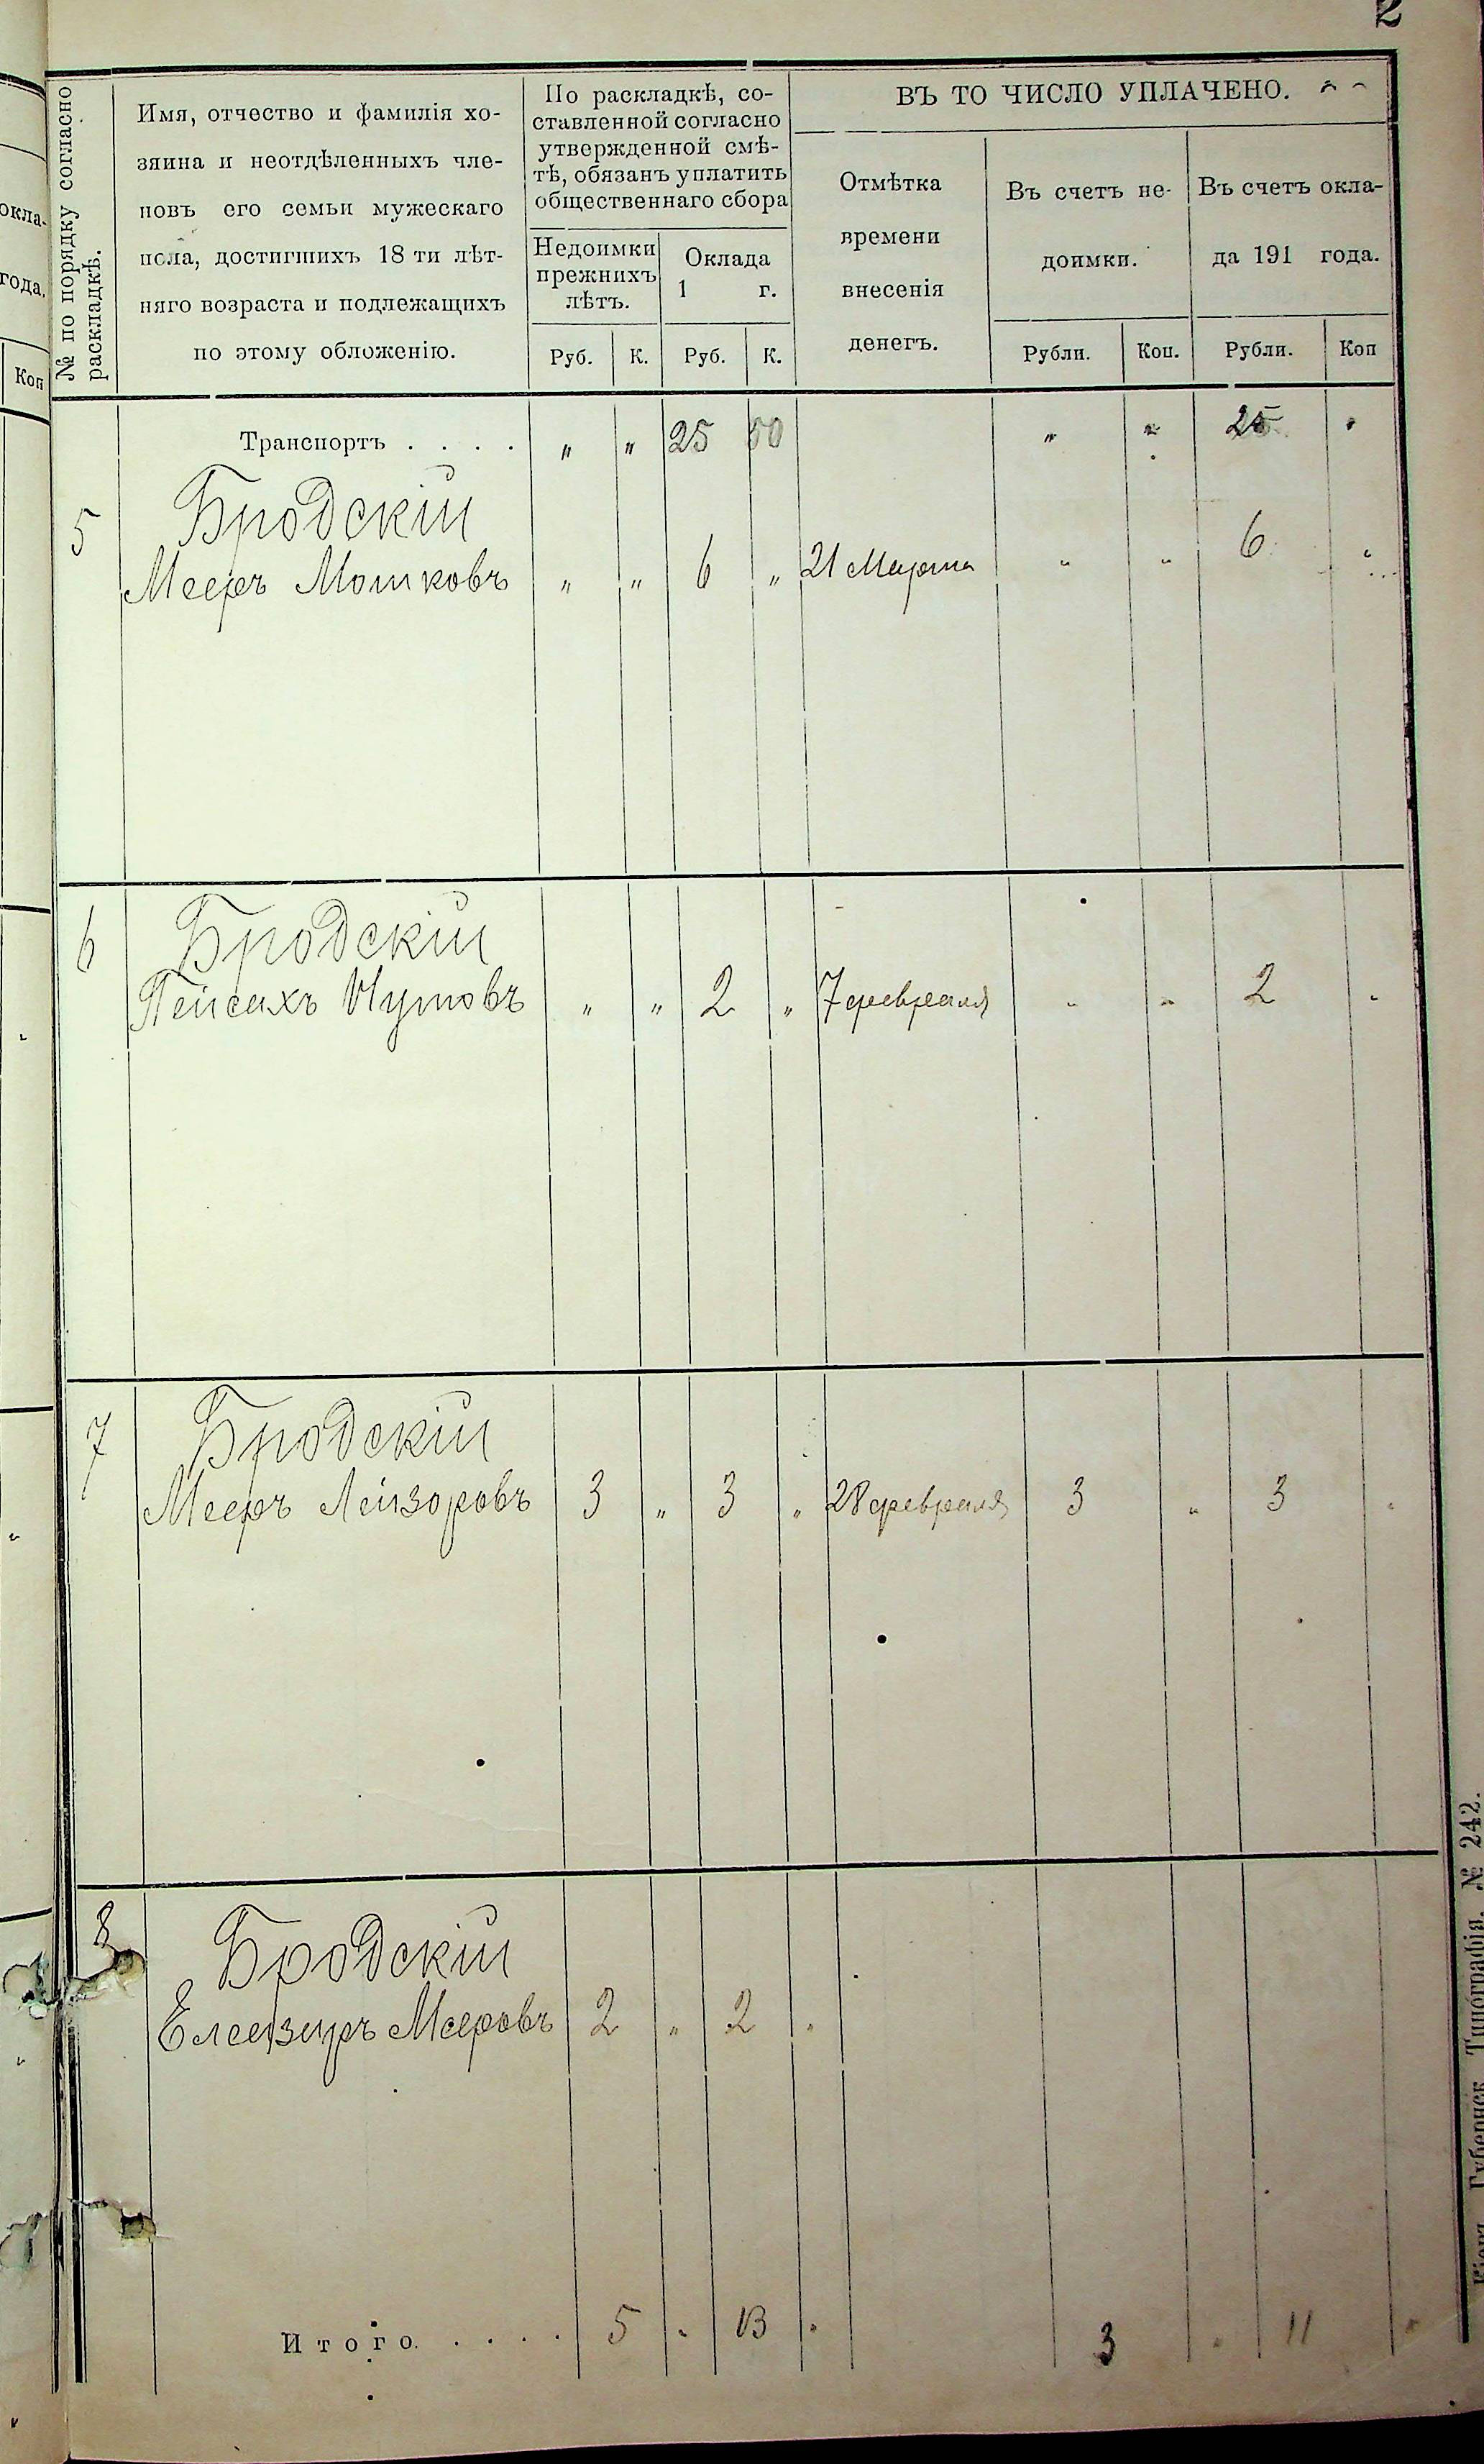 2
№ по порядку согласно
раскладкѣ.
Имя, отчество и фамилія хо-
зяина и неотдѣленныхъ чле-
новъ его семьи мужескаго
пола, достигшихъ 18 ти лѣт-
няго возраста и подлежащихъ
по этому обложенію.
По раскладкѣ, со-
ставленной согласно
утвержденной смѣ-
тѣ, обязанъ уплатить
общественнаго сбора
Недоимки
прежнихъ
лѣтъ.
Оклада
1 г.
ВЪ ТО ЧИСЛО УПЛАЧЕНО.
Отмѣтка
времени
внесенія
денегъ.
Въ счетъ не-
доимки.
Въ счетъ окла-
да 191 года.
Руб. К. Руб. К. Рубли. Коп. Рубли. Коп
окла-
года.
Коп
Транспортъ . . . . " " 25 50 " " 25 "
5 Бродскій
Мееръ Мошковъ " " 6 " 21 Марта " " 6 "
6 Бродскій
Пейсахъ " " 2 " 7 февраля " " 2 "
7 Бродскій
Мееръ Лейзоровъ 3 " 3 " 28 февраля 3 " 3 "
8 Бродскій
Елеазаръ Мееровъ 2 " 2 "
Итого. . . . . 5 " 13 " 3 " 11 "
Губернск. Типографія. № 242.